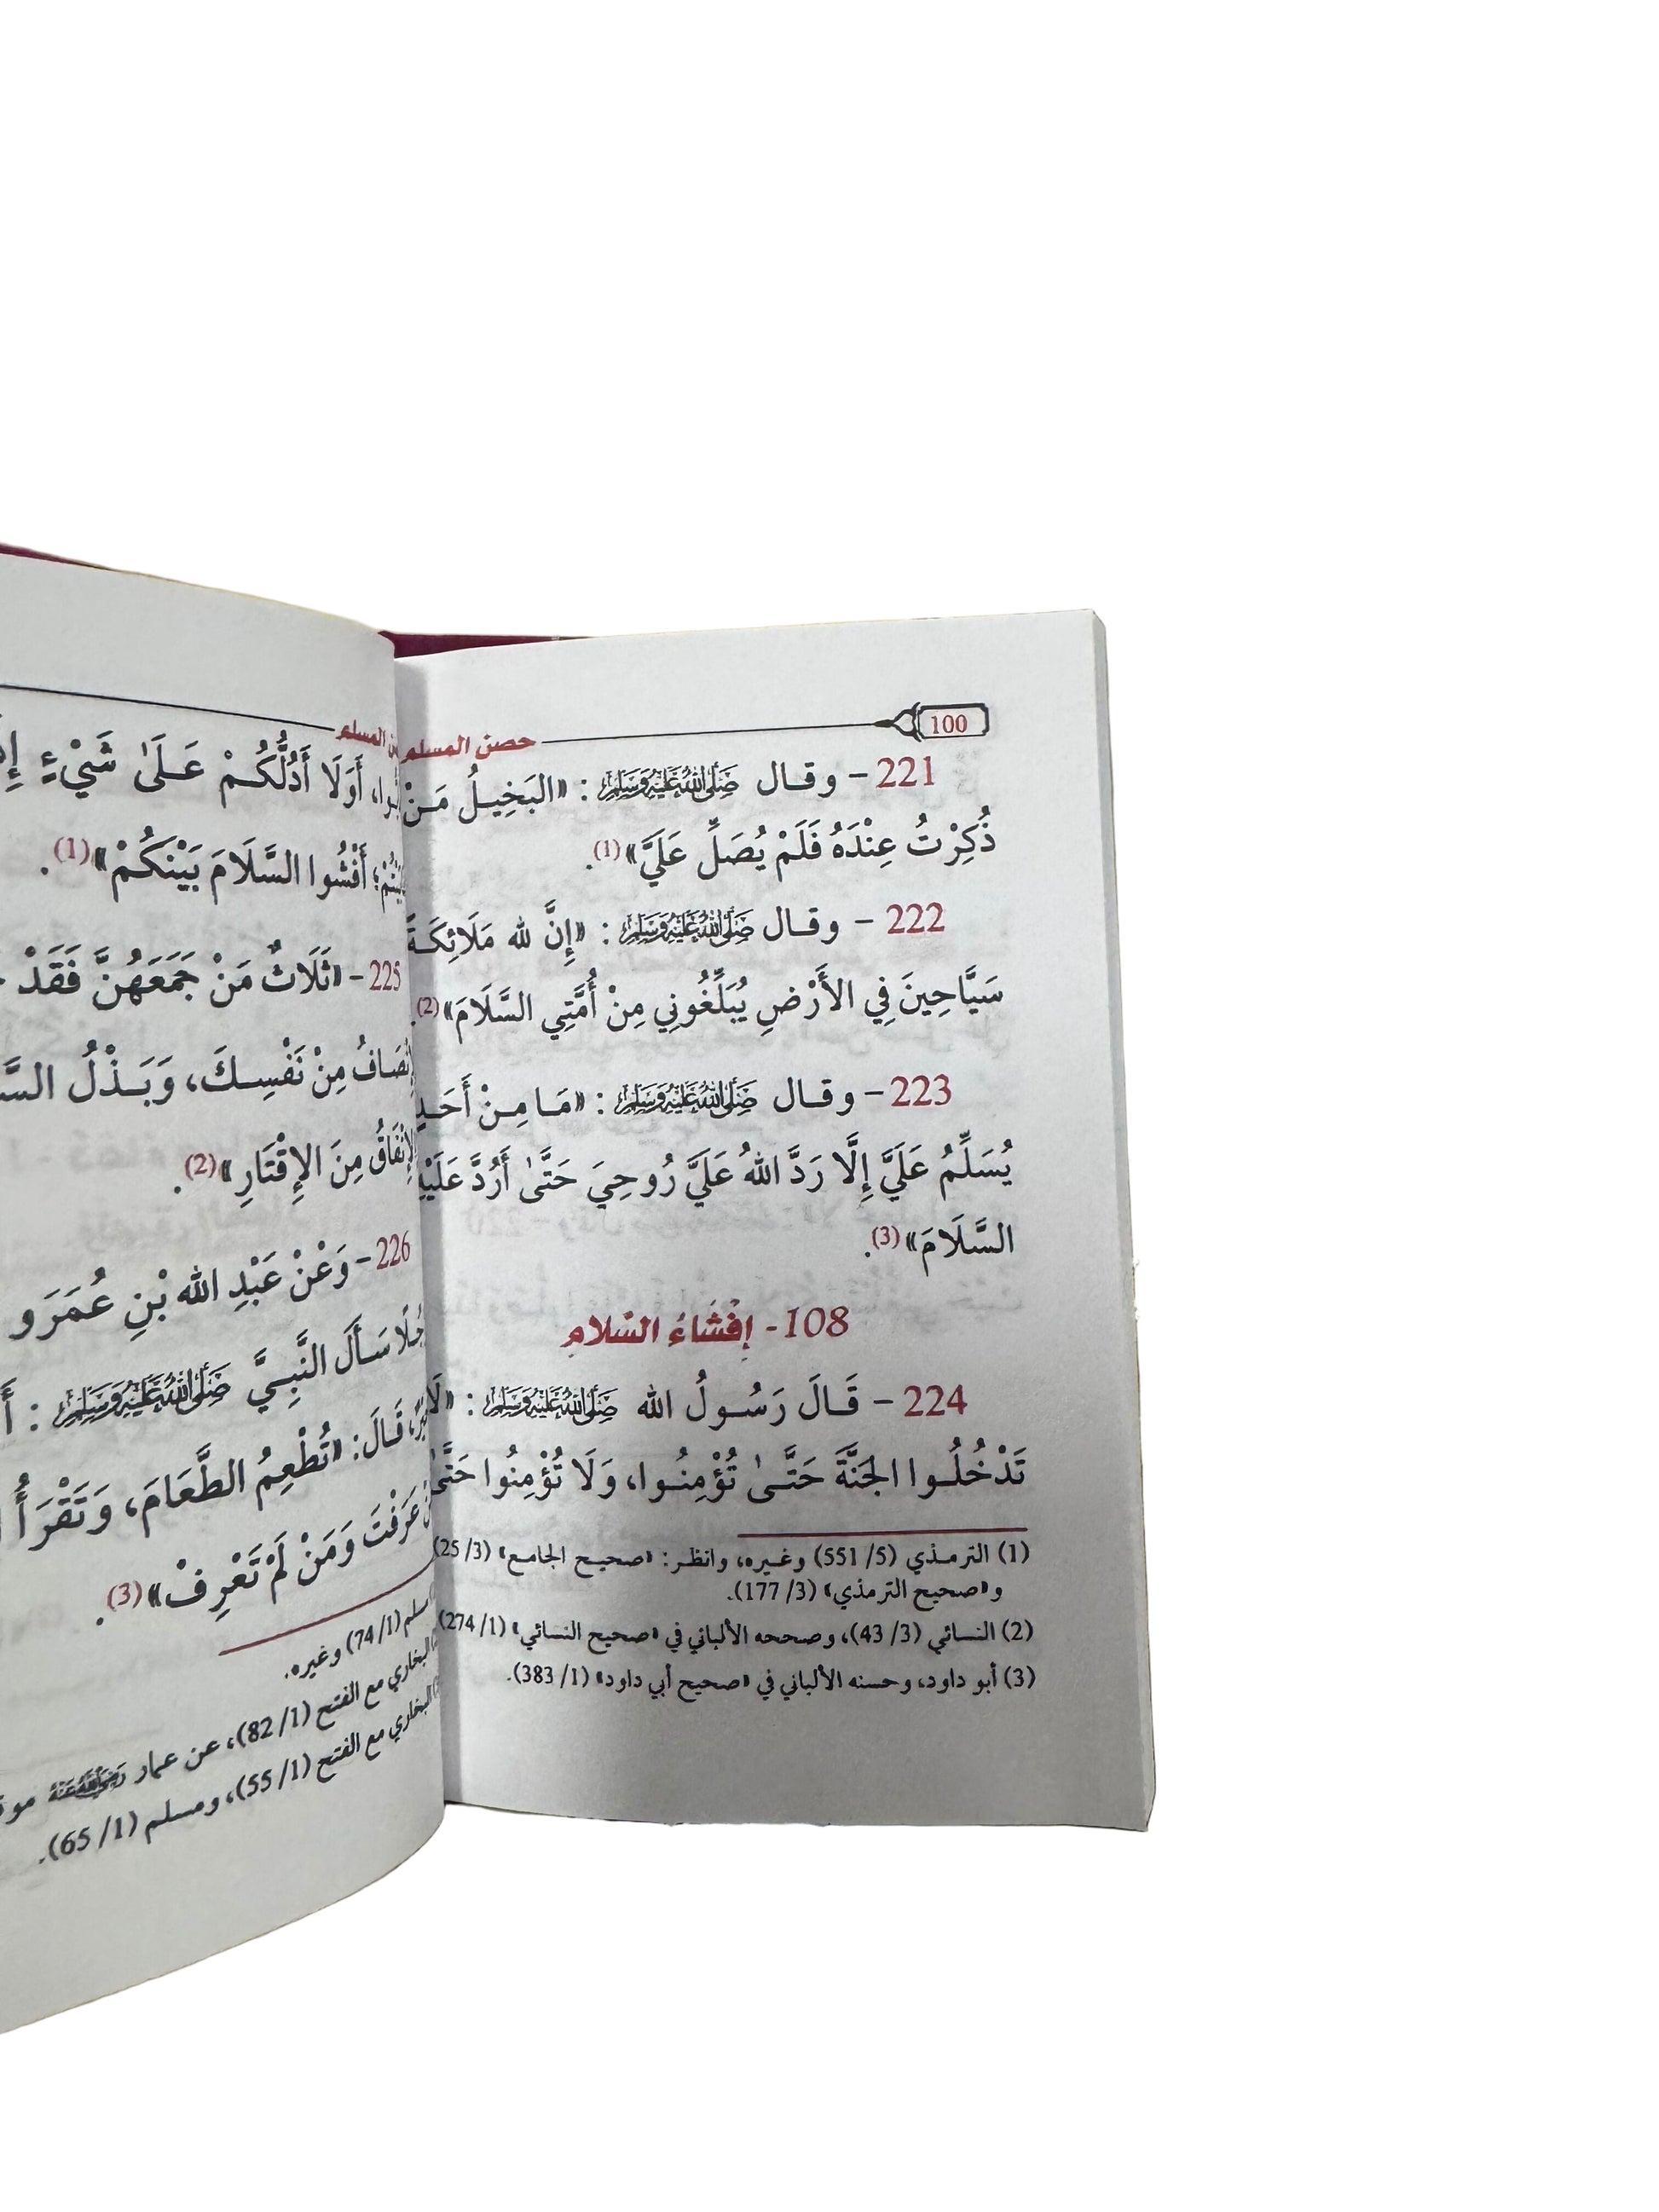 100
حصن المسلم
221 - وقال ﷺ : «البَخِيلُ مَنْ
ذُكِرْتُ عِنْدَهُ فَلَمْ يُصَلِّ عَلَيَّ»(1).
222 - وقال ﷺ : «إِنَّ لله مَلَائِكَةً
سَيَّاحِينَ فِي الأَرْضِ يُبَلِّغُونِي مِنْ أُمَّتِي السَّلَامَ»(2).
223 - وقال ﷺ : «مَا مِنْ أَحَدٍ
يُسَلِّمُ عَلَيَّ إِلَّا رَدَّ اللهُ عَلَيَّ رُوحِيَ حَتَّىٰ أَرُدَّ عَلَيْهِ
السَّلَامَ»(3).
108 - إفْشَاءُ السّلامِ
224 - قَالَ رَسُولُ الله ﷺ : «لَا
تَدْخُلُوا الجَنَّةَ حَتَّىٰ تُؤْمِنُوا، وَلَا تُؤْمِنُوا حَتَّىٰ
(1) الترمذي (5/ 551) وغيره، وانظر: «صحيح الجامع» (3/ 25)
و«صحيح الترمذي» (3/ 177).
(2) النسائي (3/ 43)، وصححه الألباني في «صحيح النسائي» (1/ 274)
(3) أبو داود، وحسنه الألباني في «صحيح أبي داود» (1/ 383).
المسلم
أَوَلَا أَدُلُّكُمْ عَلَىٰ شَيْءٍ
أَفْشُوا السَّلَامَ بَيْنَكُمْ»(1).
225 - «ثَلَاثٌ مَنْ جَمَعَهُنَّ فَقَدْ
مِنْ نَفْسِكَ، وَبَذْلُ
مِنَ الإِقْتَارِ»(2).
226 - وَعَنْ عَبْدِ الله بْنِ عُمَرَو
سَأَلَ النَّبِيَّ ﷺ :
قَالَ: «تُطْعِمُ الطَّعَامَ، وَتَقْرَأُ
عَرَفْتَ وَمَنْ لَمْ تَعْرِفْ»(3).
مسلم (1/ 74) وغيره.
البخاري مع الفتح (1/ 82)، عن عمار رَضِيَ اللهُ عَنْهُ
البخاري مع الفتح (1/ 55)، ومسلم (1/ 65).